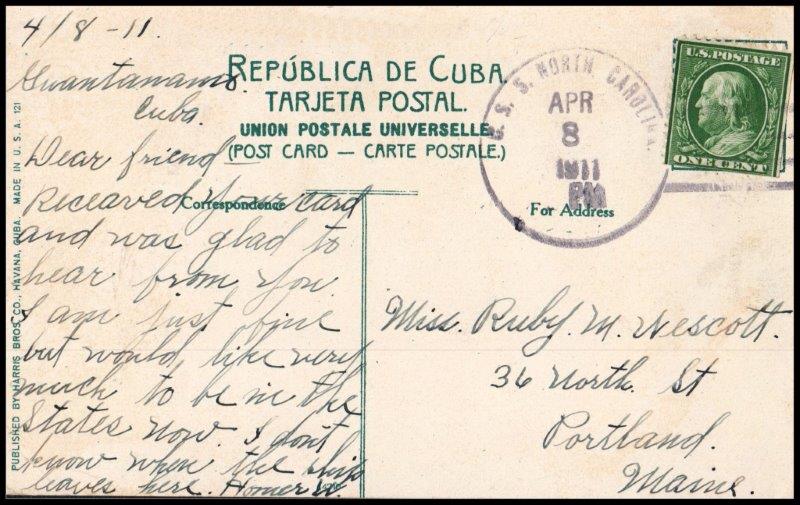 4/8-11.
Guantanamo.
Cuba.
REPÚBLICA DE CUBA.
TARJETA POSTAL.
UNION POSTALE UNIVERSELLE.
(POST CARD — CARTE POSTALE.)
U.S.S. NORTH CAROLINA.
APR
8
1911
PM
U.S. POSTAGE
ONE CENT
Correspondence
For Address
Dear friend
Receaved your card
and was glad to
hear from you
I am just fine
but would like very
much to be in the
States now. I don't
know when the ship
leaves here. Homer W.
Miss. Ruby M. Wescott.
36 North. St
Portland.
Maine.
PUBLISHED BY HARRIS BROS. CO., HAVANA, CUBA. MADE IN U. S. A. 121